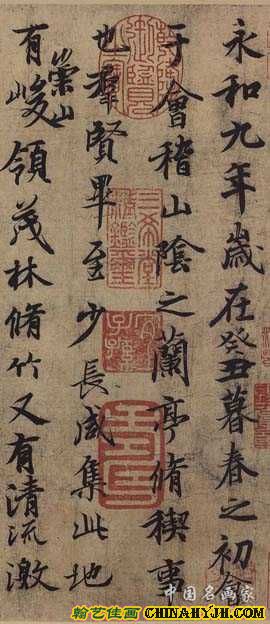 永和九年歲在癸丑暮春之初會
于會稽山陰之蘭亭脩稧事
也羣賢畢至少長咸集此地
有崇山峻領茂林脩竹又有清流激
三希堂精鑒璽
宜子孫
中国名画家
翰艺佳画 CHINAHYJH.COM